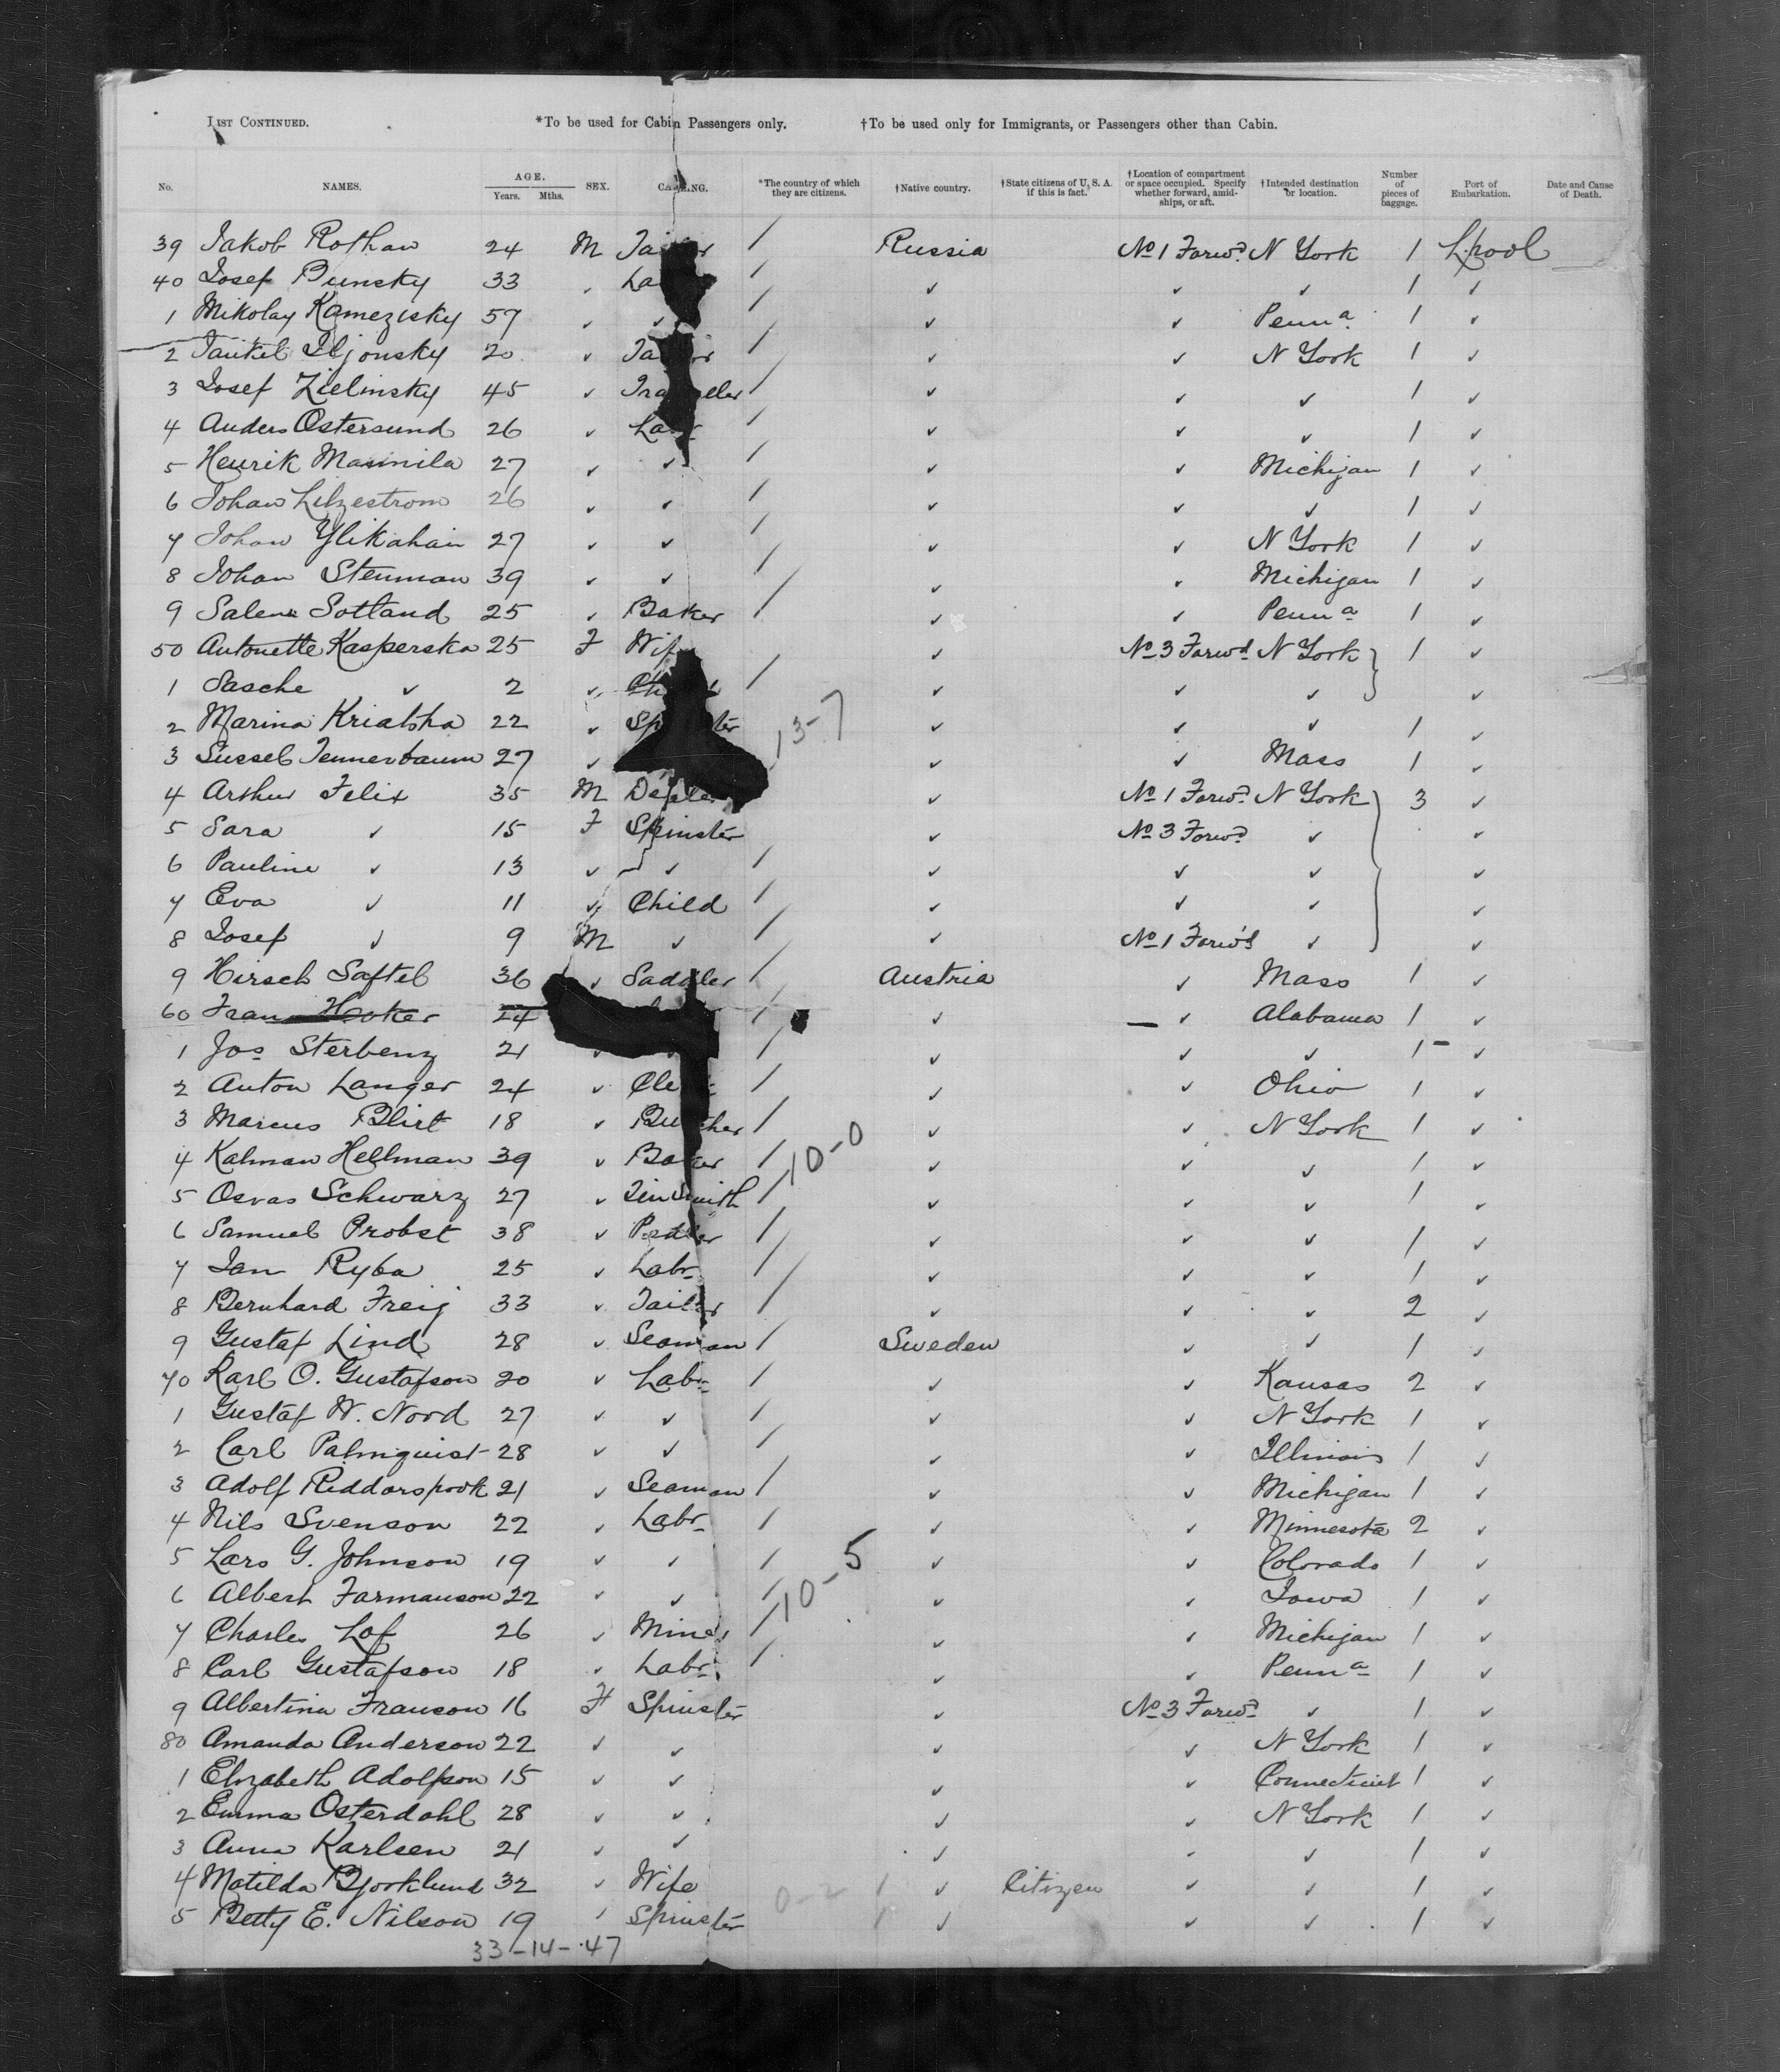 LIST CONTINUED. *To be used for Cabin Passengers only. †To be used only for Immigrants, or Passengers other than Cabin.
No. NAMES. AGE. Years. Mths. SEX. CALLING. *The country of which they are citizens. †Native country. †State citizens of U. S. A. if this is fact. †Location of compartment or space occupied. Specify whether forward, amidships, or aft. †Intended destination or location. Number of pieces of baggage. Port of Embarkation. Date and Cause of Death.
39 Jakob Rothan 24 M / Russia No 1 Forwd. N York 1 L.pool
40 Josef Bunsky 33 ✓ / ✓ ✓ ✓ 1 ✓
1 Mikolay Kamezisky 57 ✓ ✓ / ✓ ✓ Penna. 1 ✓
2 20 ✓ / ✓ ✓ N York 1 ✓
3 Josef Zielinsky 45 ✓ / ✓ ✓ ✓ 1 ✓
4 Anders Ostersund 26 ✓ / ✓ ✓ ✓ 1 ✓
5 Henrik Mannila 27 ✓ ✓ / ✓ ✓ Michigan 1 ✓
6 Johan 26 ✓ ✓ / ✓ ✓ ✓ 1 ✓
7 Johan Ylikahain 27 ✓ ✓ / ✓ ✓ N York 1 ✓
8 Johan Stenman 39 ✓ ✓ / ✓ ✓ Michigan 1 ✓
9 Salem Sotland 25 ✓ Baker / ✓ ✓ Penna 1 ✓
50 Antonette Kasperska 25 F Wife ✓ No 3 Forwd. N York 1 ✓
1 Sasche ✓ 2 ✓ / ✓ ✓ ✓ ✓
2 Marina 22 ✓ 13-7 ✓ ✓ ✓ 1 ✓
3 27 ✓ ✓ ✓ Mass 1 ✓
4 Arthur Felix 35 M ✓ No 1 Forwd. N York 3 ✓
5 Sara ✓ 15 F Spinster ✓ No 3 Forwd. ✓ ✓
6 Pauline ✓ 13 ✓ ✓ / ✓ ✓ ✓ ✓
7 Eva ✓ 11 ✓ Child / ✓ ✓ ✓ ✓
8 Josef ✓ 9 M ✓ / ✓ No 1 Forw'd ✓ ✓
9 Hirsch Saftel 36 ✓ Saddler / Austria ✓ Mass 1 ✓
60 24 / ✓ ✓ Alabama 1 ✓
1 Jos. Sterbenz 21 ✓ / ✓ ✓ ✓ 1 ✓
2 Anton Langer 24 ✓ / ✓ ✓ Ohio 1 ✓
3 Marcus Blirt 18 ✓ Butcher / ✓ ✓ N York 1 ✓
4 Kalman Hellman 39 ✓ Baker / 10-0 ✓ ✓ ✓ 1 ✓
5 Osvas Schwarz 27 ✓ Tin Smith / ✓ ✓ ✓ 1 ✓
6 Samuel Probst 38 ✓ Pedler / ✓ ✓ ✓ 1 ✓
7 Jan Ryba 25 ✓ Labr. / ✓ ✓ ✓ 1 ✓
8 Bernhard Freij 33 ✓ Tailor / ✓ ✓ ✓ 2 ✓
9 Gustaf Lind 28 ✓ Seaman / Sweden ✓ ✓ 1 ✓
70 Karl O. Gustafson 20 ✓ Labr. / ✓ ✓ Kansas 2 ✓
1 Gustaf W. Nord 27 ✓ ✓ / ✓ ✓ N York 1 ✓
2 Carl Palmquist 28 ✓ ✓ / ✓ ✓ Illinois 1 ✓
3 Adolf 21 ✓ Seaman / ✓ ✓ Michigan 1 ✓
4 Nils Svenson 22 ✓ Labr. / ✓ ✓ Minnesota 2 ✓
5 Lars G. Johnson 19 ✓ ✓ / ✓ ✓ Colorado 1 ✓
6 Albert Farmanson 22 ✓ ✓ / 10-5 ✓ ✓ Iowa 1 ✓
7 Charles Lof 26 ✓ Miner / ✓ ✓ Michigan 1 ✓
8 Carl Gustafson 18 ✓ Labr. / ✓ ✓ Penna 1 ✓
9 Albertina Franson 16 F Spinster ✓ No 3 Forwd. ✓ 1 ✓
80 Amanda Anderson 22 ✓ ✓ ✓ ✓ N York 1 ✓
1 Elizabeth Adolfson 15 ✓ ✓ ✓ ✓ Connecticut 1 ✓
2 Emma Osterdahl 28 ✓ ✓ ✓ ✓ N York 1 ✓
3 Anna Karlsen 21 ✓ ✓ ✓ ✓ ✓ 1 ✓
4 Matilda Bjorklund 32 ✓ Wife 0-2 / ✓ Citizen ✓ ✓ 1 ✓
5 Betty E. Nilson 19 ✓ Spinster / ✓ ✓ ✓ 1 ✓
33-14-47